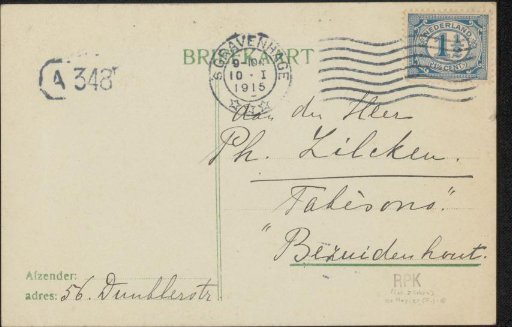 BRIEFKAART
NEDERLAND
1½
CENT
'S-GRAVENHAGE
10 - I
1915
A 348
Aan den Heer
Ph. Zilcken.
"Bezuidenhout.
Afzender:
adres: 56.
RPK